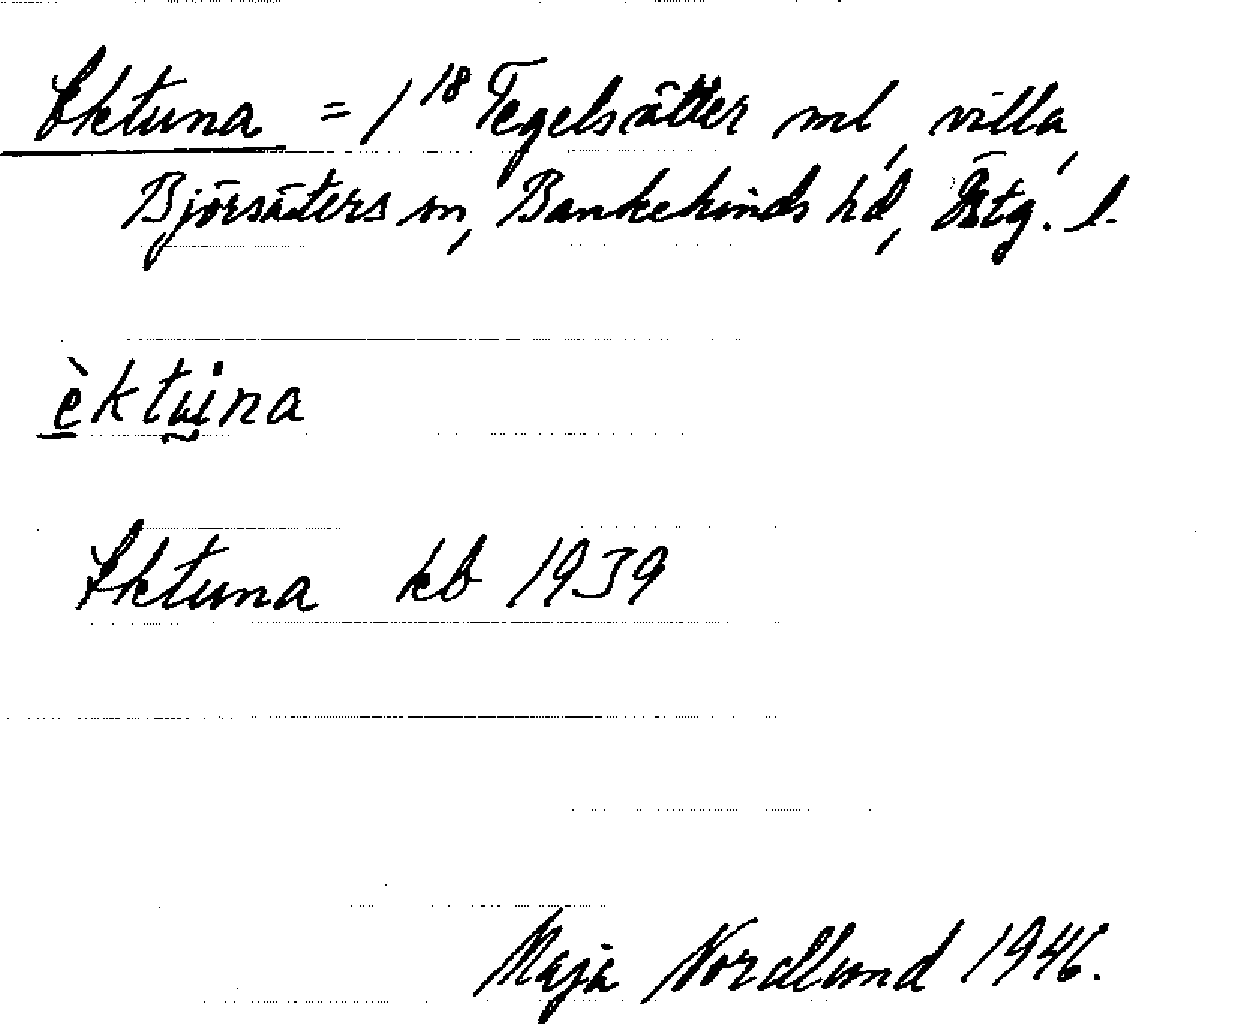 Ektuna = 1¹⁸ Tegelsätter ml, villa
Björsäters sn, Bankekinds hd, Östg. l.
èktuna
Ektuna kb 1939
Maja Nordlund 1946.